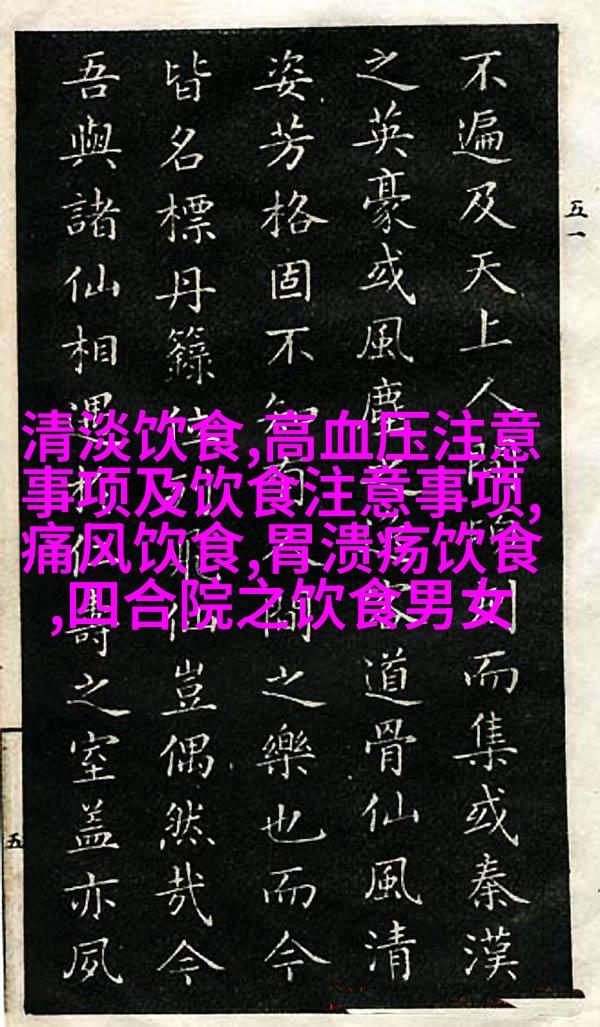 不遍及天上人間刻而集或秦漢
之英豪或風塵之容道骨仙風清
姿芳格固不知有人間之樂也而今
皆名標丹籙位仙豈偶然哉今
吾與諸仙相遇於仁壽之室蓋亦夙
五一
五
清淡饮食,高血压注意
事项及饮食注意事项,
痛风饮食,胃溃疡饮食
,四合院之饮食男女